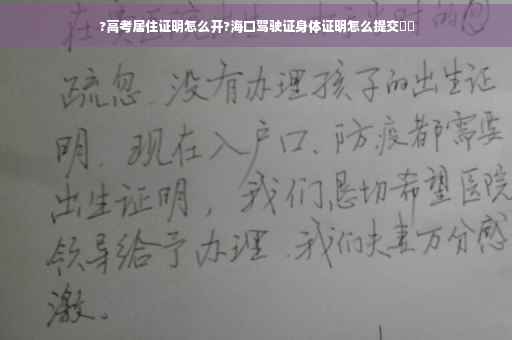 ?高考居住证明怎么开?海口驾驶证身体证明怎么提交
疏忽.没有办理孩子的出生证
明.现在入户口、防疫都需要
出生证明，我们恳切希望医院
领导给予办理.我们夫妻万分感
激。